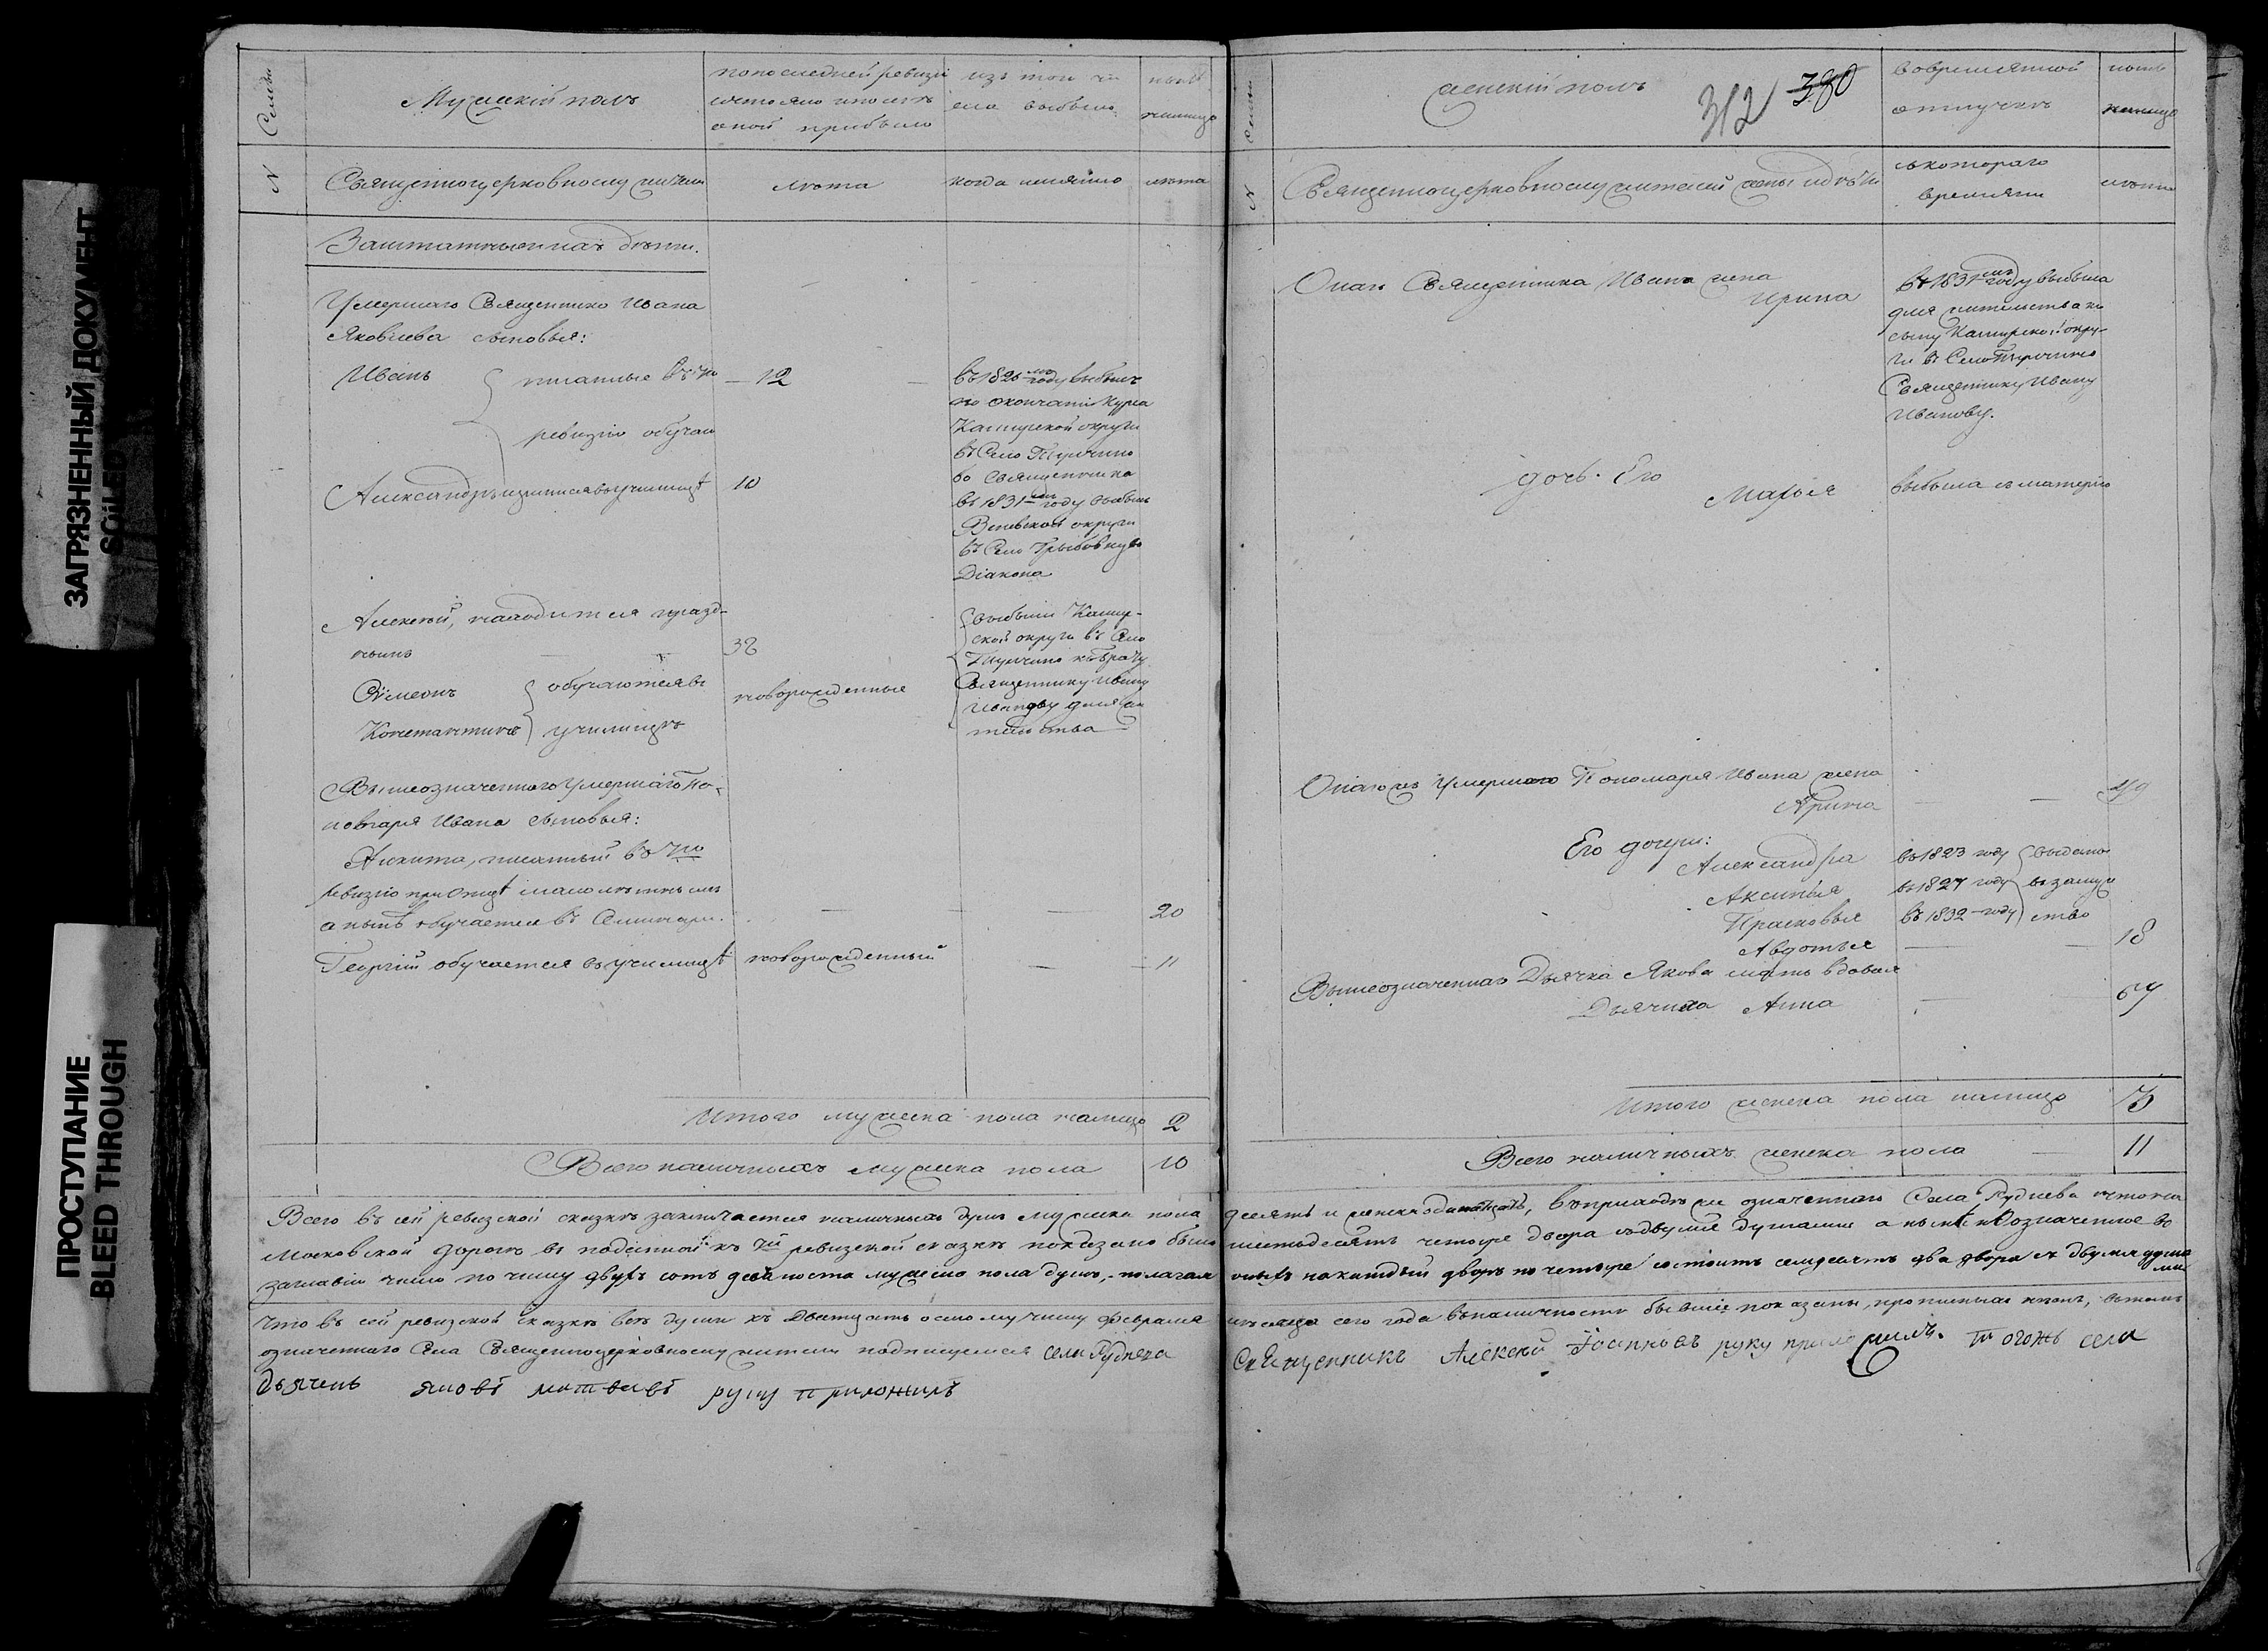 ЗАГРЯЗНЕННЫЙ ДОКУМЕНТ
SOILED
ПРОСТУПАНИЕ
BLEED THROUGH
Семьи
Мужескій полъ
по последней ревизіи
состояло и после
оной прибыло
изъ того чи
сла выбыло
ныне
налицо
N
Священноцерковнослужители
лета
когда имянно
лета
Заштатные и ихъ дети.
Умершаго Священника Ивана
Яковлева сыновья:
Иванъ
писанные въ 7ю
12
ревизію обучал
Александръ
въ училище
10
въ 1826мъ году выбылъ
по окончаніи курса
Каширской округи
въ Село Тюрчино
во священника
въ 1831мъ году выбылъ
Веневской округи
въ Село
Діакона
Алексей, находится празд-
нымъ
38
Сѵмеонъ
Константинъ
обучаются въ
училище
новорожденные
выбыли Кашир-
ской округи въ Село
Тюрчино къ брату
Священнику Ивану
Иванову для жи
тельства
Вышеозначенного Умершаго По-
номаря Ивана сыновья:
Никита, писанный въ 7ю
ревизію при отце малолетнымъ
а ныне обучается въ Семинаріи
20
Георгій обучается въ училище
новорожденный
11
Итого мужеска пола налицо 2
Всего наличныхъ мужеска пола 10
312 380
Семьи
женскій полъ
во временной
отлучке
ныне
налицо
N
Священноцерковнослужителей жены и дети
съ котораго
времени
лета
Онаго Священника Ивана жена
Ирина
въ 1831мъ году выбыла
для жительства къ
сыну Каширской окру-
ги въ Село Тюрчино
Священнику Ивану
Иванову.
дочь Его
Марья
выбыла съ матерью
Онагожъ Умершаго Пономаря Ивана жена
Арина
49
Его дочери:
Александра
въ 1823 году
Аксинья
въ 1827 году
Прасковья
въ 1832 году
выданы
въ замуже
ство
Авдотья
18
Вышеозначеннаго Дьячка Якова мать вдовая
Дьячиха Анна
67
Итого женска пола налицо 3
Всего наличныхъ женска пола 11
Всего въ сей ревизской сказке заключается наличныхъ душъ мужеска пола десять и женска одинатцать, въ приходе же означеннаго Села Руднева что на
Московской дороге въ поданной къ 7й ревизской сказке показано было шестьдесятъ четыре двора съ двумя душами а ныне означенное во
заглавіи число по числу двухъ сотъ девяноста мужеска пола душъ, полагая ныне на каждый дворъ по четыре состоитъ семдесятъ два двора съ двумя душа
ми
Что въ сей ревизской сказке все души къ Двадцать осьмому числу Февраля месяца сего года въ наличности бывшіе показаны, прописныхъ нетъ, въ томъ
означенного Села Священноцерковнослужители подписуемся Села Руднева Священникъ Алексей руку приложилъ. Тогожъ села
дьячекъ яковъ матвевъ руку приложилъ